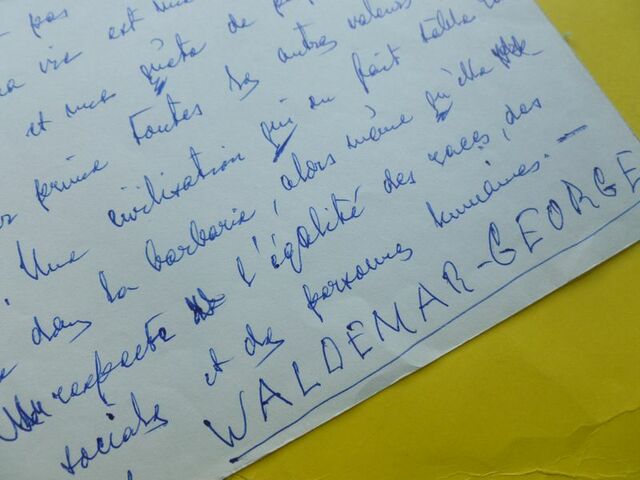 pas
vie est une
et une quête de
prime toutes les autres valeurs
. Une civilisation qui en fait table
dans la barbarie, alors même qu'elle
respecte l'égalité des races, des
sociales et des personnes humaines. —
WALDEMAR-GEORGE